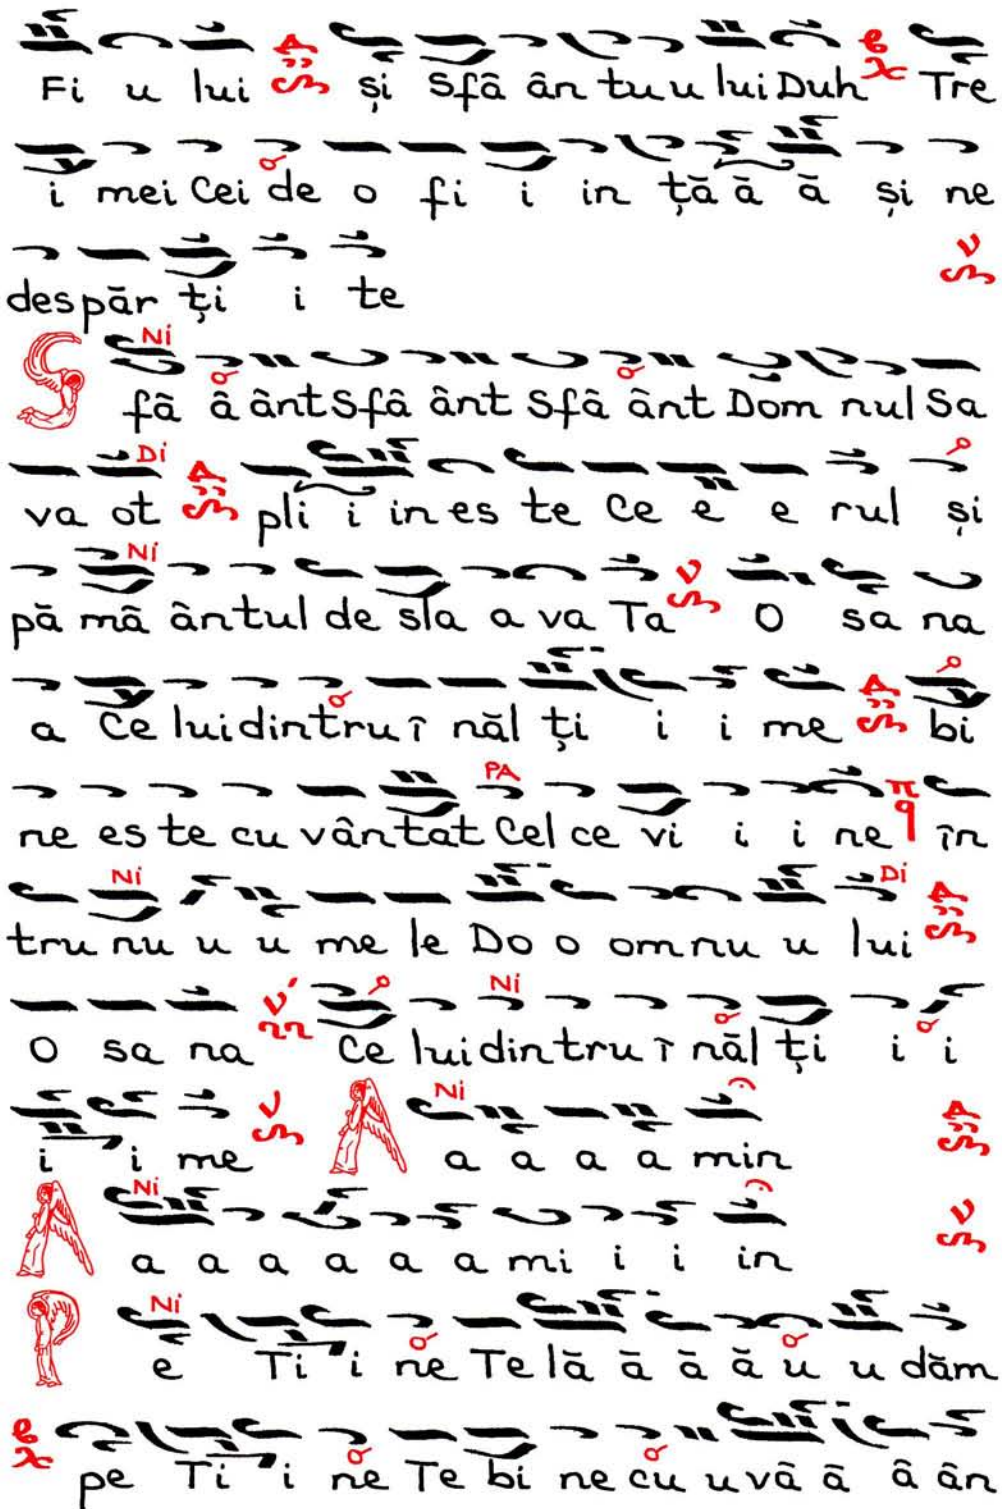 Fi u lui și Sfâ ân tu u lui Duh Tre
i mei Cei de o fi i in ță ă ă și ne
despăr ți i te
Ni
S fâ â ânt Sfâ ânt Sfâ ânt Dom nul Sa
Di
va ot pli i in es te Ce e e rul și
Ni
pă mâ ântul de sla a va Ta O sa na
a Ce lui dintru î năl ți i i me bi
PA
ne es te cu vântat Cel ce vi i i ne în
Ni Di
tru nu u u me le Do o om nu u lui
Ni
O sa na Ce lui dintru î năl ți i i
Ni
i i me A a a a a min
Ni
A a a a a a a mi i i in
Ni
P e Ti i ne Te lă ă ă ă u u dăm
pe Ti i ne Te bi ne cu u vâ â â ân